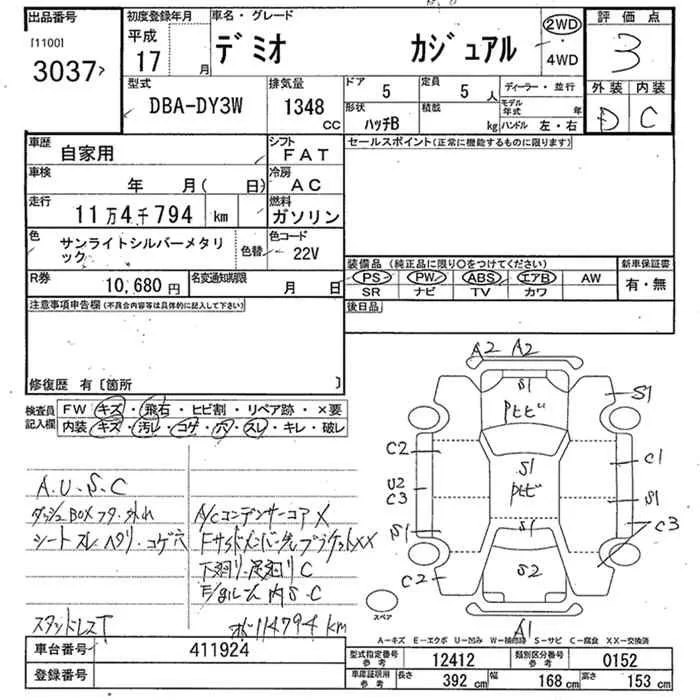 出品番号
[1100]
3037
初度登録年月
平成
17 月
車名・グレード
デミオ カジュアル
2WD
4WD
評価点
3
外装 内装
D C
型式
DBA-DY3W
排気量
1348 CC
ドア 5
定員 5 人
ディーラー・並行
形状 ハッチB
積載 kg
モデル年式 年
ハンドル 左・右
車歴
自家用
シフト
FAT
セールスポイント(正常に機能するものに限ります)
車検 年 月( 日)
冷房
AC
走行
11万4千794 km
燃料
ガソリン
色
サンライトシルバーメタリック
色替
色コード
22V
R券 10,680 円
名変通知期限 月 日
装備品 (純正品に限り○をつけてください)
PS PW ABS エアB AW
SR ナビ TV カワ
新車保証書
有・無
後日品
注意事項申告欄(不具合内容等は具体的に記入して下さい)
修復歴 有〔箇所 〕
検査員記入欄
FW キズ・飛石・ヒビ割・リペア跡・×要
内装 キズ・汚レ・コゲ・穴・スレ・キレ・破レ
A.U.S.C
ダッシュBOXフタ・外れ
シートスレ・ヘタリ・コゲ穴
スタッドレスT
A/Cコンデンサーコア X
下廻り・足廻り C
内 S・C
114794 km
A2 A2
S1
S1
トビ
C2
C1
S1
トビ
U2
C3
S1
S1
S1
C3
C2
S2
A1
スペア
A-キズ E-エクボ U-凹み W-補修跡 S-サビ C-腐食 XX-交換済
車台番号 411924
登録番号
型式指定番号 参考 12412
類別区分番号 参考 0152
車庫証明用 参考 長さ 392 cm 幅 168 cm 高さ 153 cm